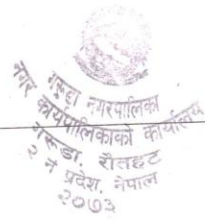 गरुडा नगरपालिका
नगर कार्यपालिकाको कार्यालय
गरूडा, रौतहट
२ नं प्रदेश, नेपाल
२०७३